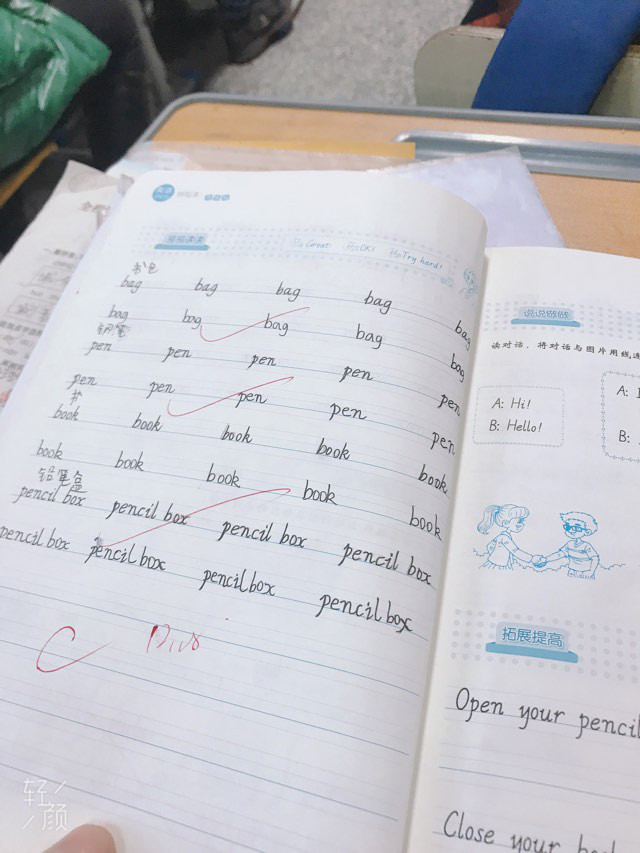 Great OK! Try hard!
书包
bag bag bag bag bag
bag bag bag bag bag
钢笔
pen pen pen pen pen
pen pen pen pen pen
书
book book book book book
book book book book book
铅笔盒
pencil box pencil box pencil box pencil box
pencil box pencil box pencil box pencil box
说说做做
读对话，将对话与图片用线
A: Hi!
B: Hello!
A:
B:
拓展提高
Open your pencil
Close your
轻颜